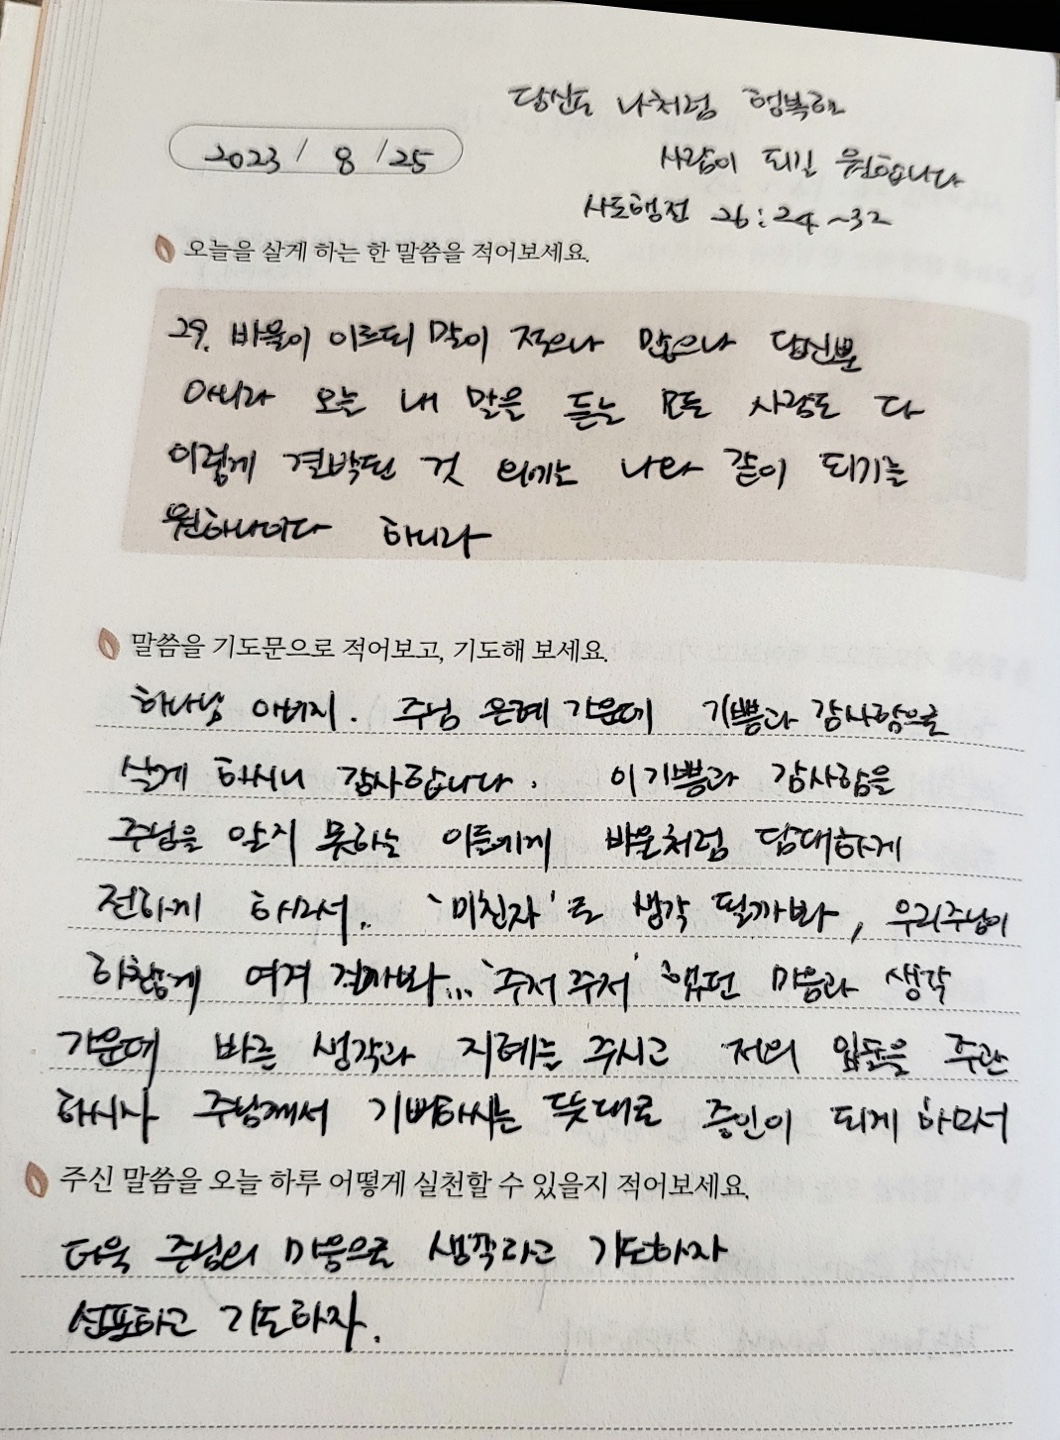 당신도 나처럼 행복한
2023 / 8 / 25
사람이 되길 원합니다
사도행전 26:24~32
오늘을 살게 하는 한 말씀을 적어보세요.
29. 바울이 이르되 말이 적으나 많으나 당신뿐
아니라 오늘 내 말을 듣는 모든 사람도 다
이렇게 결박된 것 외에는 나와 같이 되기를
원하나이다 하니라
말씀을 기도문으로 적어보고, 기도해 보세요.
하나님 아버지. 주님 은혜 가운데 기쁨과 감사함으로
살게 하시니 감사합니다. 이 기쁨과 감사함을
주님을 알지 못하는 이들에게 바울처럼 담대하게
전하게 하시며. '미친자'로 생각 될까봐, 우리주님이
하찮게 여겨 질까봐... '주저 주저' 했던 마음과 생각
가운데 바른 생각과 지혜를 주시고 저의 입술을 주관
하시사 주님께서 기뻐하시는 뜻대로 증인이 되게 하여서
주신 말씀을 오늘 하루 어떻게 실천할 수 있을지 적어보세요.
더욱 주님의 마음으로 생각하고 기도하자
선포하고 기도하자.